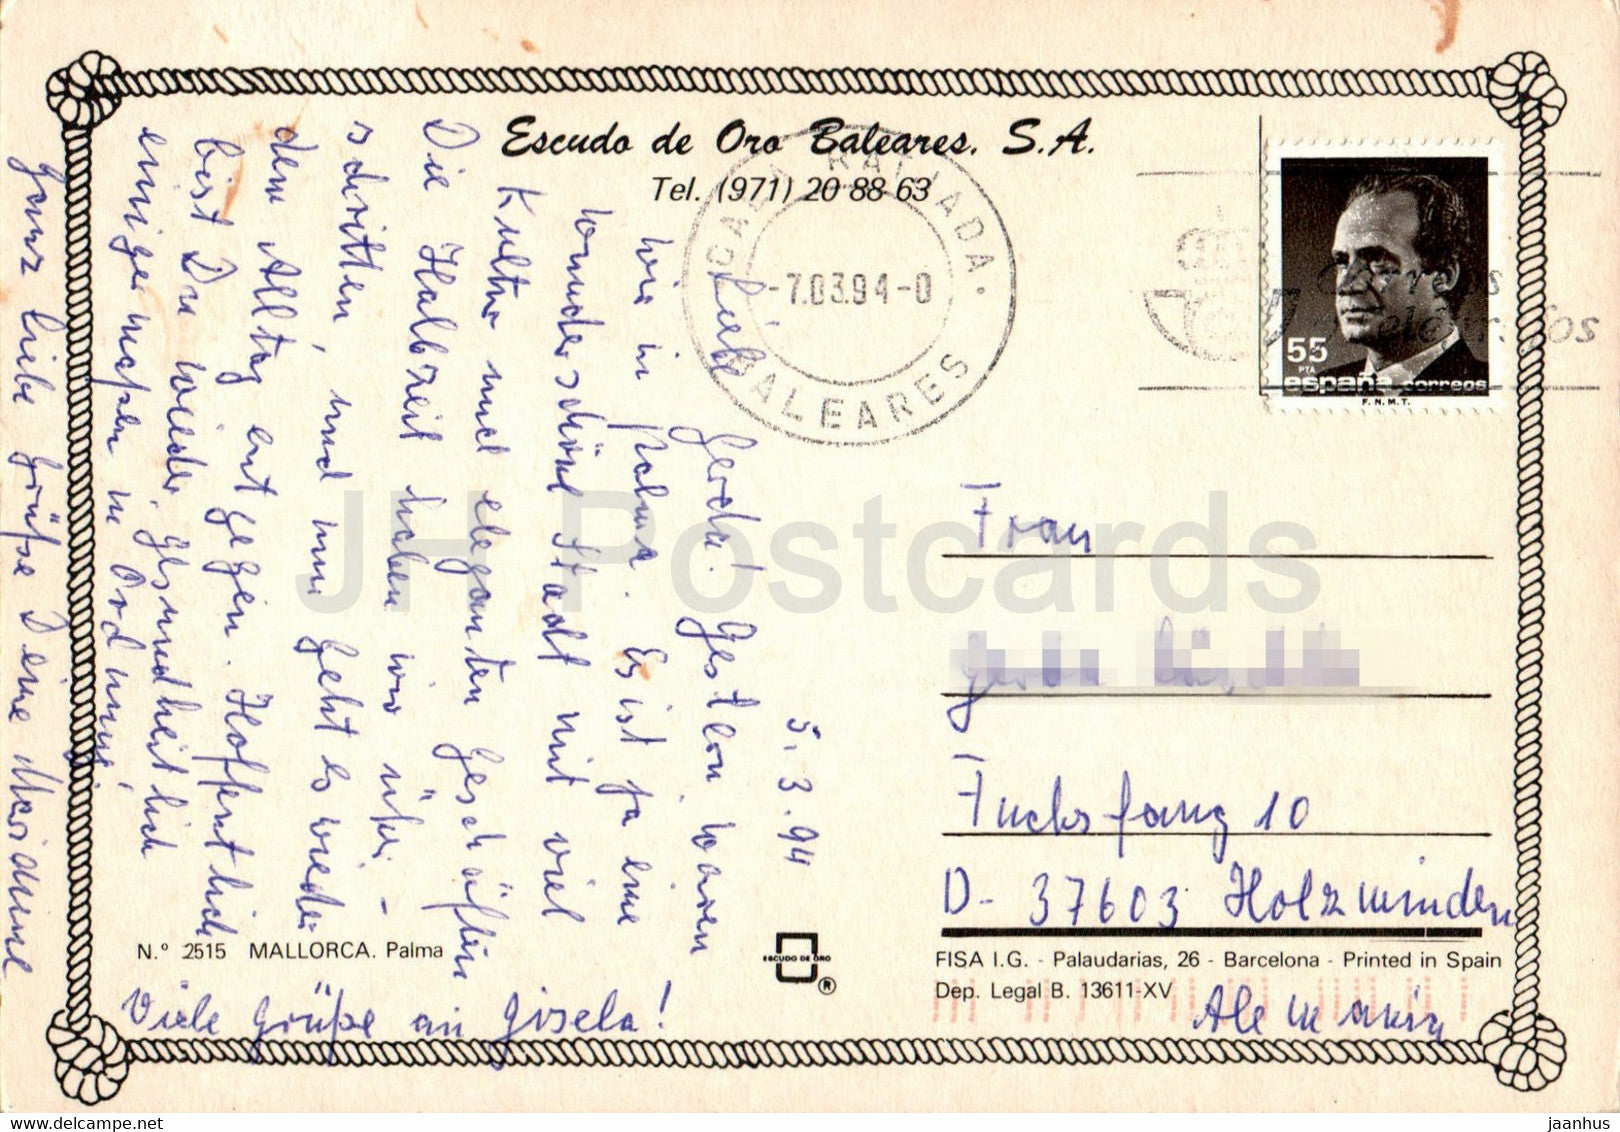 Escudo de Oro Baleares, S.A.
Tel. (971) 20 88 63
CALA RATJADA
-7.03.94-0
BALEARES
Correos
Telégrafos
55
PTA
españa correos
F.N.M.T.
5.3.94
Liebe Gerda! Gestern waren
wir in Palma. Es ist ja eine
wunderschöne Stadt mit viel
Kultur und eleganten Geschäften
Die Halbzeit haben wir über-
schritten, und nun geht es wieder
dem Alltag entgegen. Hoffentlich
bist Du wieder gesundheitlich
einigermaßen in Ordnung.
Ganz liebe Grüße Deine Marianne
Viele Grüße an Gisela!
Frau
Fuchsfang 10
D- 37603 Holzminden
Alemania
N.º 2515 MALLORCA. Palma
ESCUDO DE ORO
®
FISA I.G. - Palaudarias, 26 - Barcelona - Printed in Spain
Dep. Legal B. 13611-XV
JH Postcards
www.delcampe.net
jaanhus